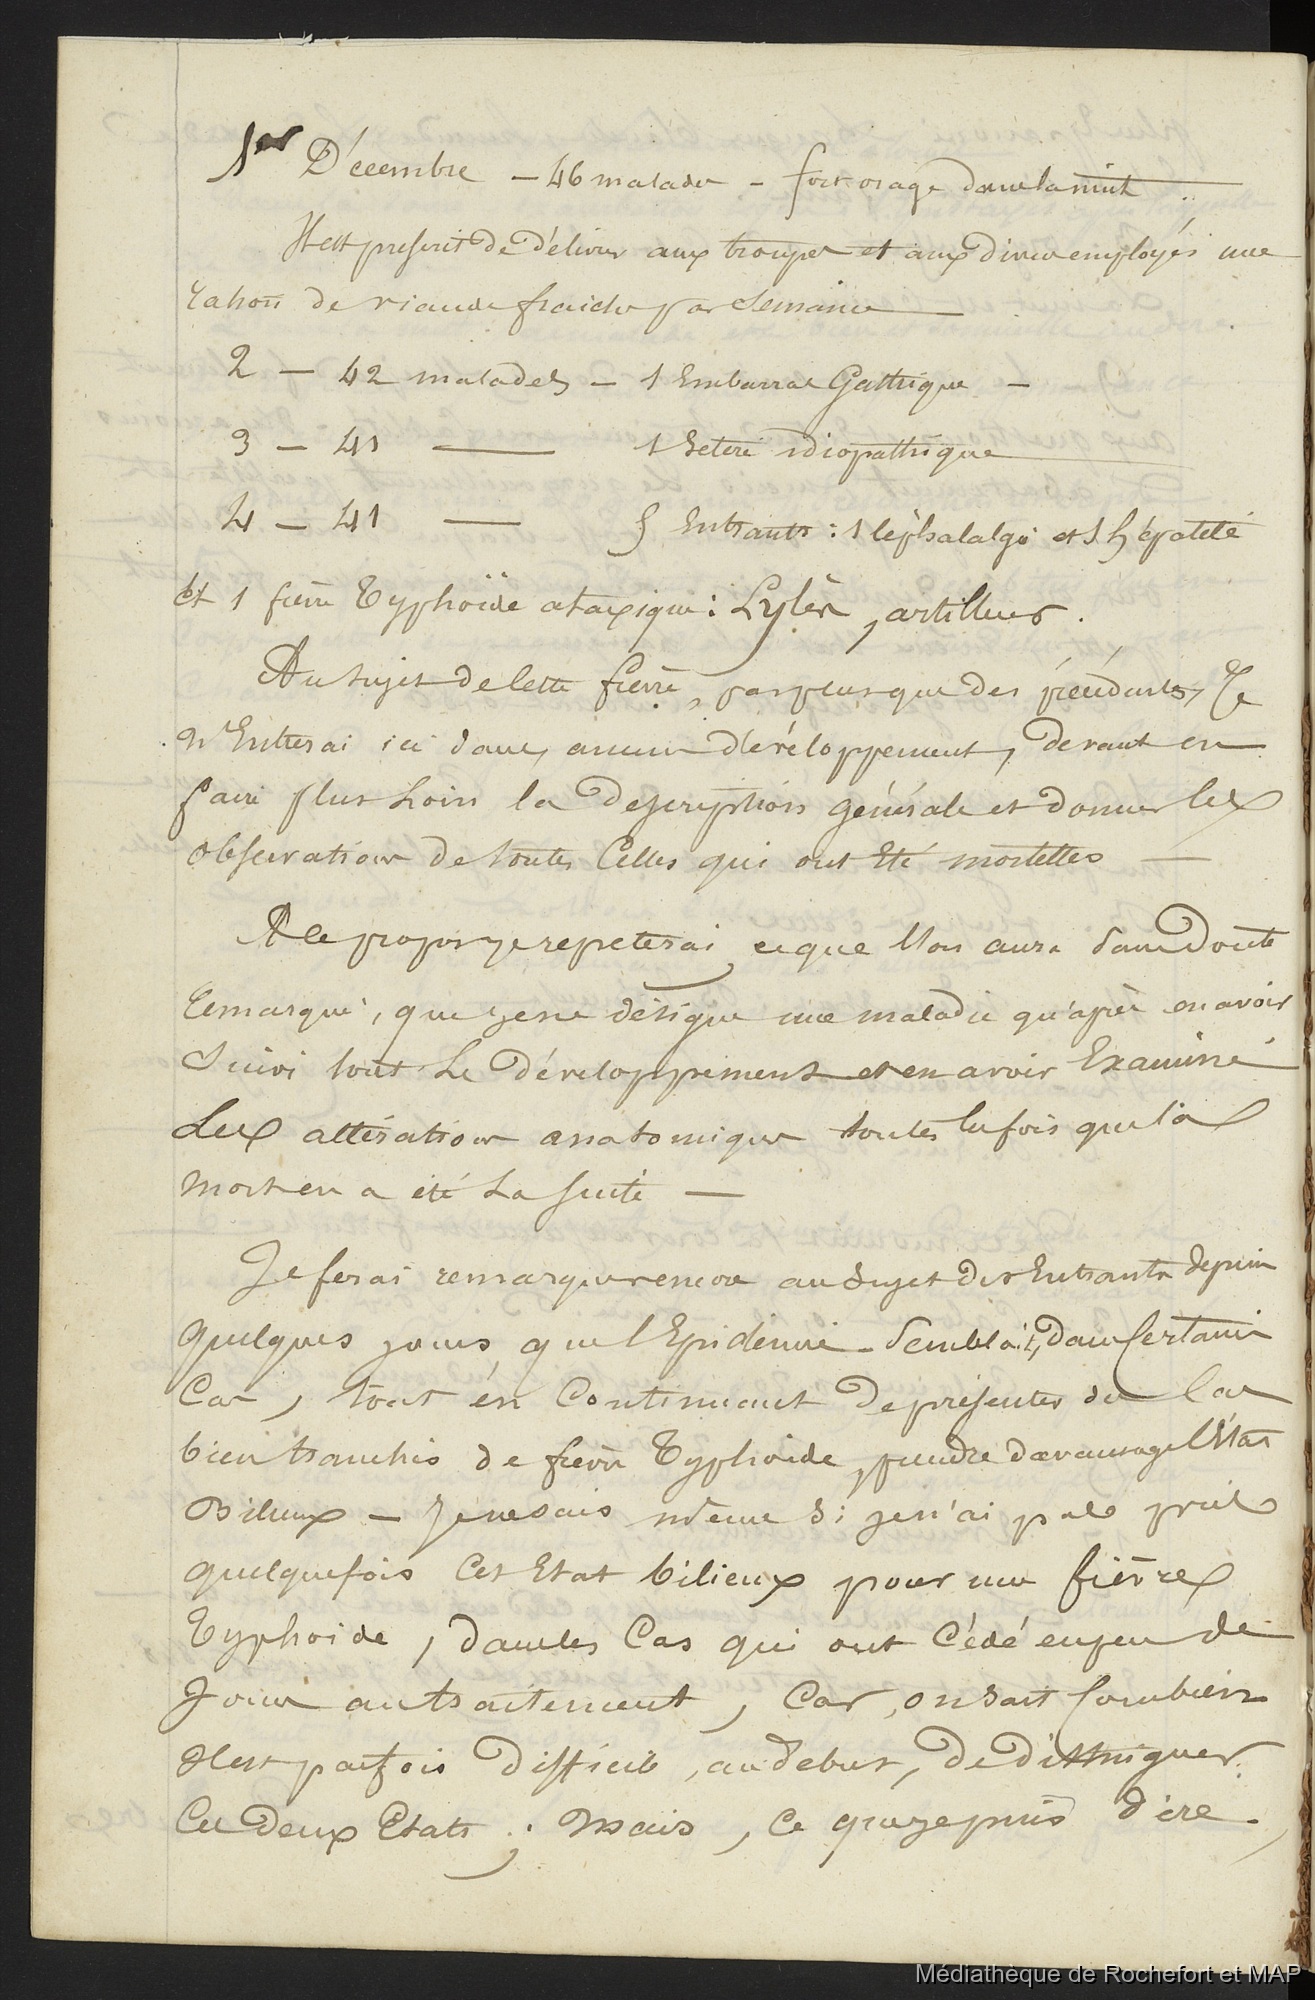 1er Décembre — 46 malades — fort orage dans la nuit
Il est prescrit de délivrer aux troupes et aux divers employés une
ration de viande fraiche par Semaine —
2 — 42 malades — 1 Embarras Gastrique —
3 — 41 — 1 Ictère idiopathique
4 — 41 — Entrants : 1 Céphalalgie et 1 hépatite
et 1 fièvre Typhoïde ataxique : artilleur.
Au sujet de Cette fièvre, pas plus que des précédentes, Je
n'Entrerai ici dans aucun développement, devant en
faire plus Loin la description générale et donner les
observations de toutes Celles qui ont Eté mortelles —
A ce propos je repeterai ce que l'on aura Sans Doute
remarqué, que je ne désigne une maladie qu'après en avoir
Suivi tout Le développement et en avoir Examiné
Les altérations anatomiques toutes les fois que la
mort en a été La suite —
Je ferai remarquer encore au Sujet des Entrants depuis
quelques jours que l'Epidémie Semblait, dans Certains
Cas, tout en Continuant De présenter des Cas
bien tranchés de fièvre Typhoïde, prendre davantage l'Etat
Bilieux — Je ne sais même Si je n'ai pas pris
quelquefois Cet Etat bilieux pour une fièvre
Typhoïde, dans les Cas qui ont Cédé en peu de
Jours au traitement, Car, on Sait Combien
Il est parfois Difficile, au début, De distinguer
Ces Deux Etats ; Mais, Ce que je puis dire
Médiathèque de Rochefort et MAP